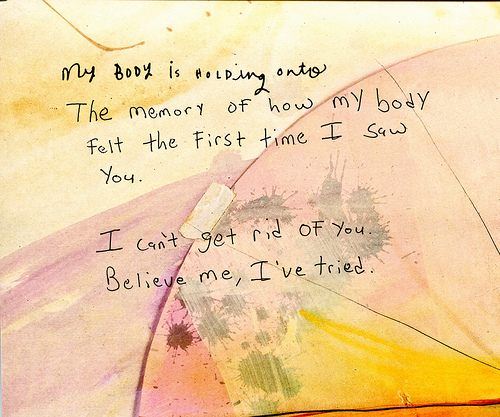 My BODY is HOLDING onto
The memory of how my body
felt the first time I saw
you.
I can't get rid of you.
Believe me, I've tried.